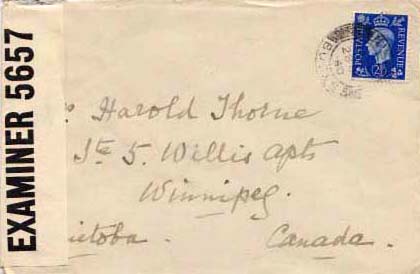 EXAMINER 5657
POSTAGE REVENUE
2½D
Harold Thorne
Ste 5. Willis Apts
Winnipeg.
itoba. Canada.